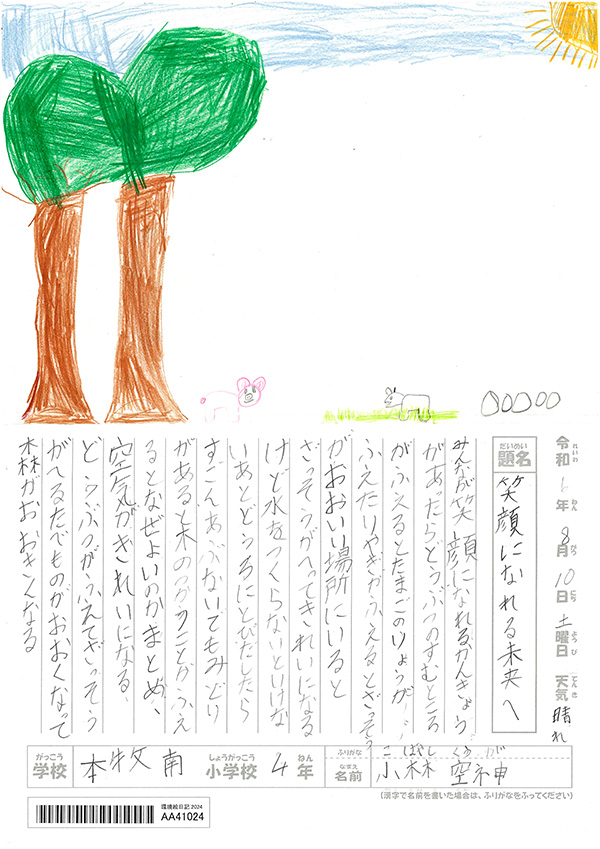 令和6年8月10日土曜日 天気 晴れ
題名 笑顔になれる未来へ
みんなが笑顔になれるかんきょう
があったらどうぶつのすむところ
がふえるとたまごのりょうが
ふえたりやぎがふえるとざっそう
がおおい場所にいると
ざっそうがへってきれいになる
けど水をつくらないといけな
いあとどうろにとびだしたら
すごんあぶないでもみどり
があると木の
るとなぜよいのかまとめ、
空気がきれいになる
どうぶつがふえてざっそう
がへるたべものがおおくなって
森がおおきくなる
学校 本牧南小学校 4年
ふりがな こばやし
名前 小林 空神
(漢字で名前を書いた場合は、ふりがなをふってください)
環境絵日記 2024
AA41024